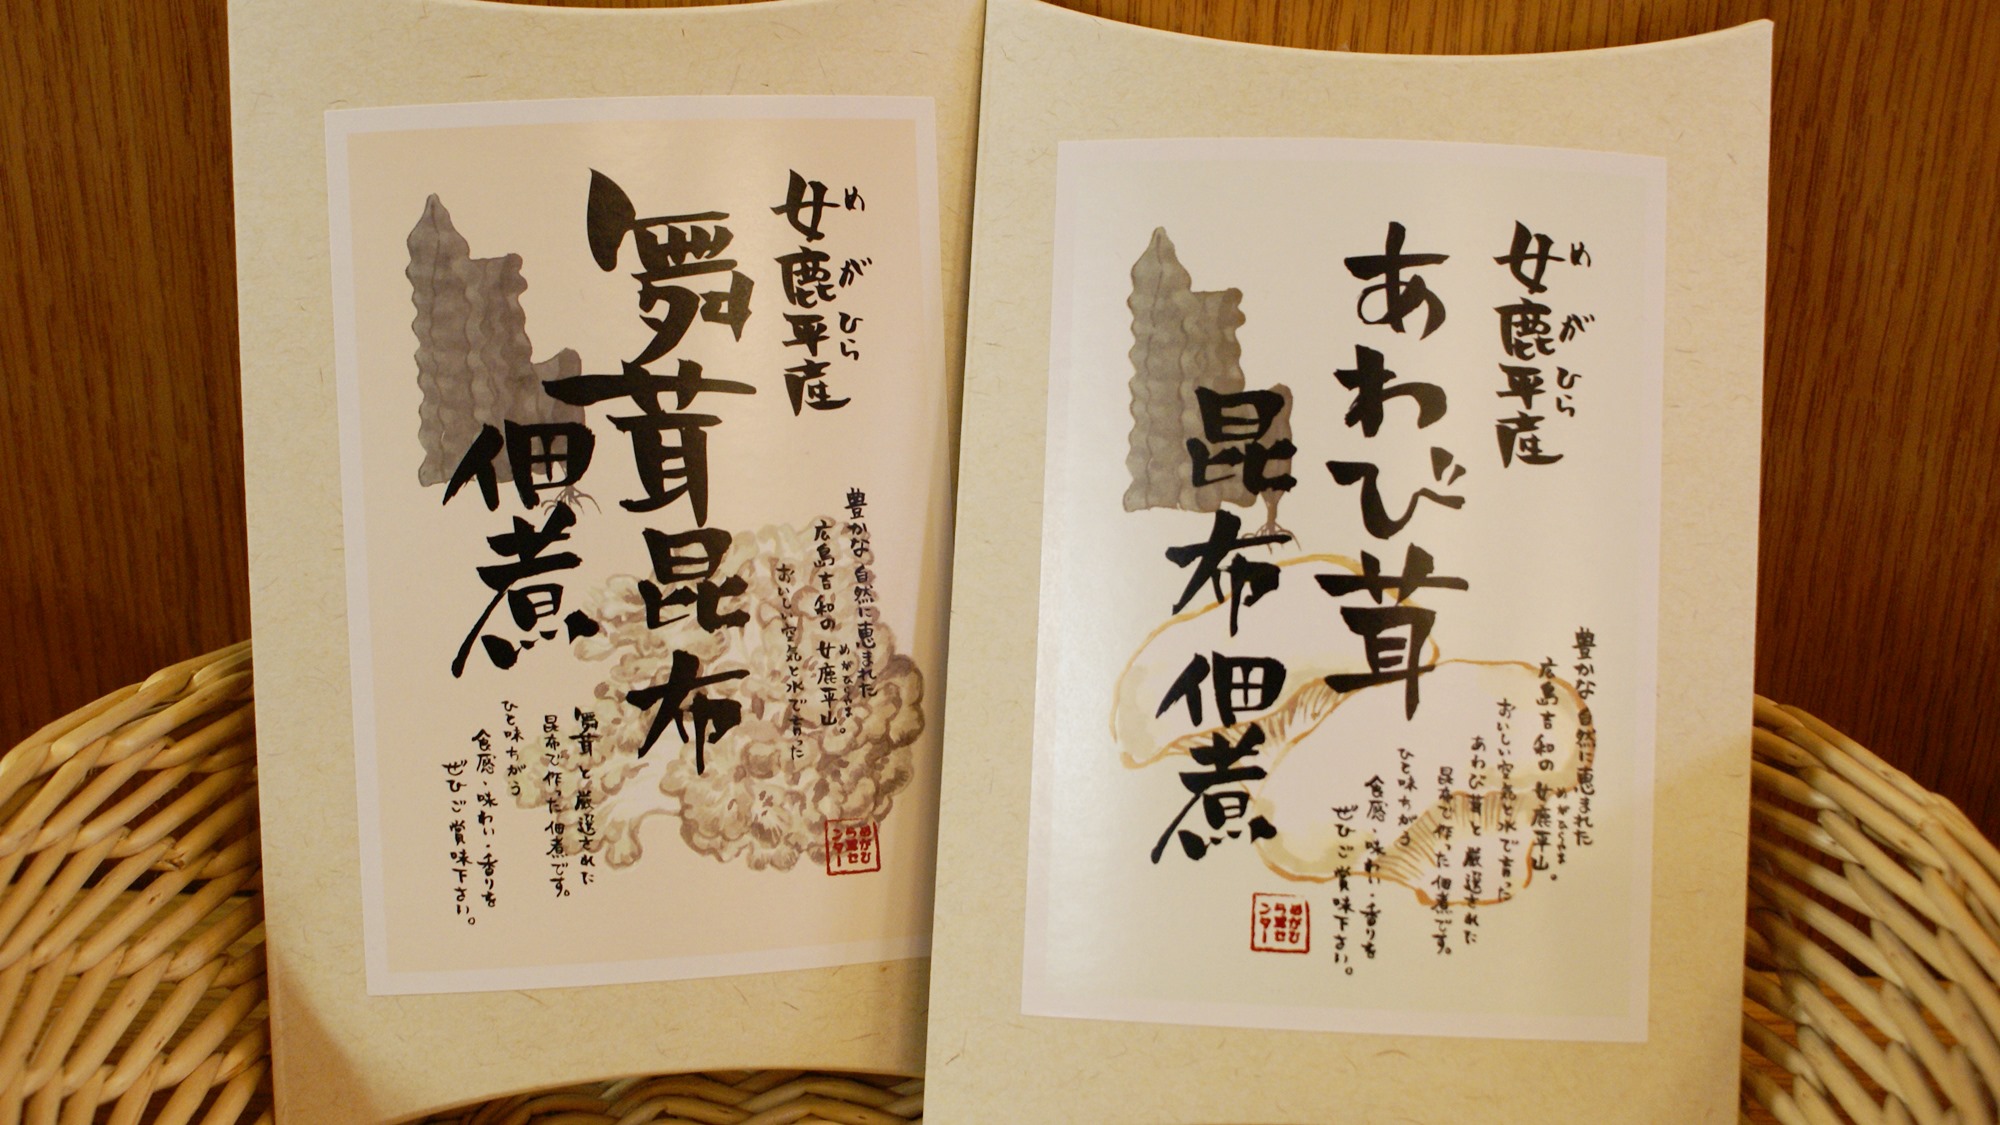 女鹿平産
めがひら
舞茸昆布
佃煮
豊かな自然に恵まれた
広島吉和の女鹿平山。
めがひらやま
おいしい空気と水で育った
舞茸と厳選された
昆布で作った佃煮です。
ひと味ちがう
食感・味わい・香りを
ぜひご賞味下さい。
めがひ
ら茸セ
ンター
女鹿平産
めがひら
あわび茸
昆布佃煮
豊かな自然に恵まれた
広島吉和の女鹿平山。
めがひらやま
おいしい空気と水で育った
あわび茸と厳選された
昆布で作った佃煮です。
ひと味ちがう
食感・味わい・香りを
ぜひご賞味下さい。
めがひ
ら茸セ
ンター